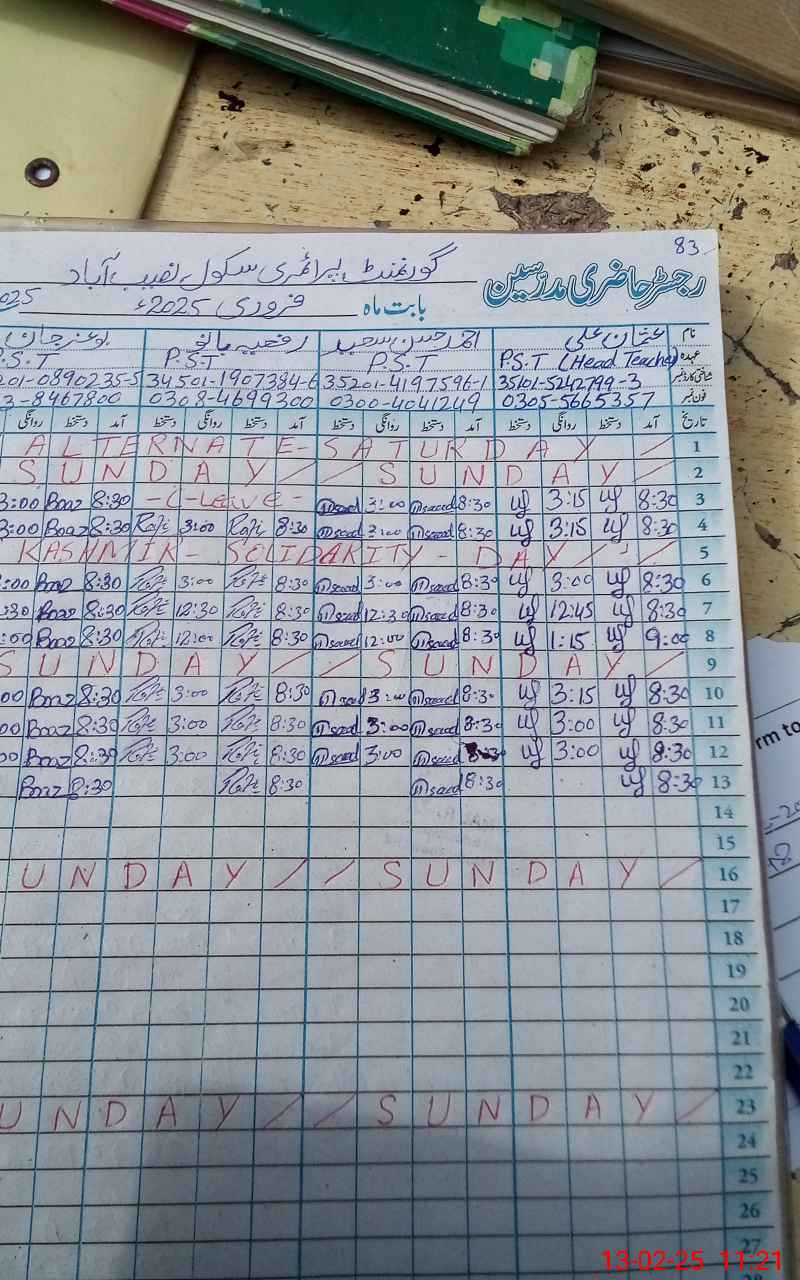 83
رجسٹر حاضری مدرسین
گورنمنٹ پرائمری سکول نصیب آباد
بابت ماہ فروری 2025ء
نام عثمان علی احمد حسن سعید
عہدہ P.S.T (Head Teacher) P.S.T P.S.T P.S.T
شناختی کارڈ نمبر 35101-5242799-3 35201-4197596-1 34501-1907384-6 201-0890235-5
فون نمبر 0305-5665357 0300-4041249 0308-4699300 3-8467800
تاریخ آمد دستخط روانگی دستخط آمد دستخط روانگی دستخط آمد دستخط روانگی دستخط آمد دستخط روانگی
ALTERNATE-SATURDAY / 1
SUNDAY // SUNDAY / 2
3:00 Booz 8:30 -C-Leave- saeed 3:00 saeed 8:30 3:15 8:30 3
3:00 Booz 8:30 Rafi 3:00 Rafi 8:30 saeed 3:00 saeed 8:30 3:15 8:30 4
KASHMIR- SOLIDARITY- DAY / ' / 5
:00 Booz 8:30 Rafi 3:00 Rafi 8:30 saeed 3:00 saeed 8:30 3:00 8:30 6
:30 Booz 8:30 Rafi 12:30 Rafi 8:30 saeed 12:30 saeed 8:30 12:45 8:30 7
:00 Booz 8:30 Rafi 12:00 Rafi 8:30 saeed 12:00 saeed 8:30 1:15 9:00 8
SUNDAY // SUNDAY / 9
00 Booz 8:30 Rafi 3:00 Rafi 8:30 saeed 3:00 saeed 8:30 3:15 8:30 10
00 Booz 8:30 Rafi 3:00 Rafi 8:30 saeed 3:00 saeed 8:30 3:00 8:30 11
00 Booz 8:30 Rafi 3:00 Rafi 8:30 saeed 3:00 saeed 8:30 3:00 8:30 12
Booz 8:30 Rafi 8:30 saeed 8:30 8:30 13
14
15
UNDAY // SUNDAY / 16
17
18
19
20
21
22
UNDAY // SUNDAY / 23
24
25
26
27
rm to
13-02-25 11:21